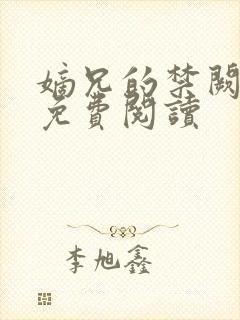 嫡兄的禁闕
免費閱讀
李旭鑫